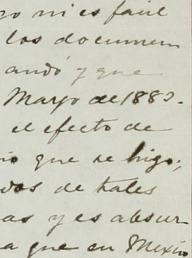 ro ni es fácil
los documen
andó y que
Marzo de 1883.
el efecto de
que se hizo;
dos de tales
as y es absur
a que en Mexico